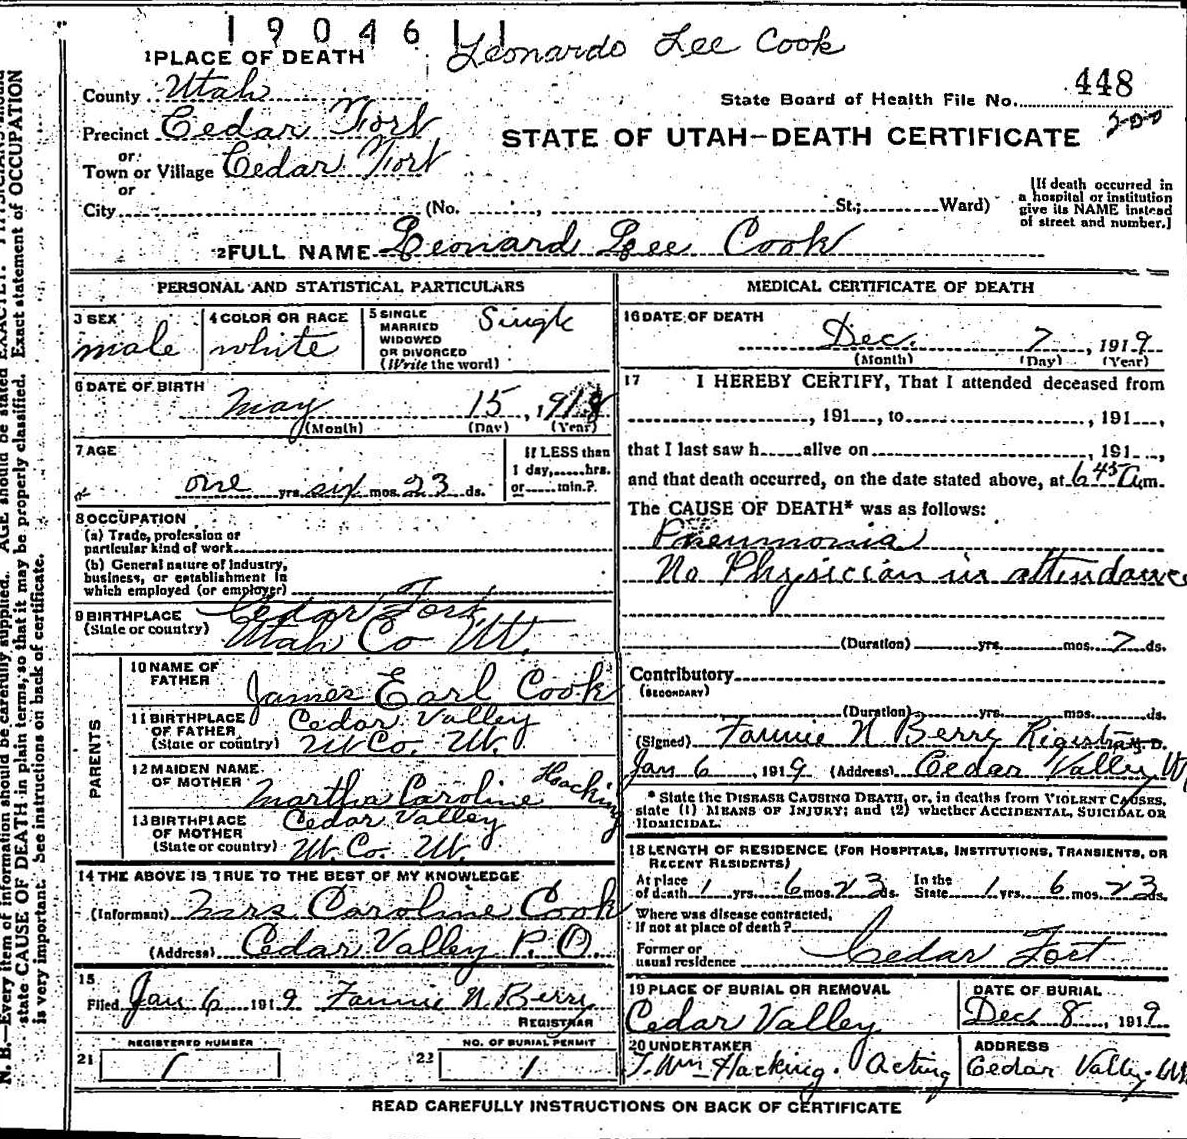 1 9 0 4 6 1 1
Leonardo Lee Cook
1 PLACE OF DEATH
County Utah
448
State Board of Health File No.
Precinct Cedar Fort
or
Town or Village Cedar Fort
or
STATE OF UTAH—DEATH CERTIFICATE
200
City (No. , St.; Ward)
[If death occurred in
a hospital or institution
give its NAME instead
of street and number.]
2 FULL NAME Leonard Lee Cook
PERSONAL AND STATISTICAL PARTICULARS
3 SEX
male
4 COLOR OR RACE
white
5 SINGLE
MARRIED
WIDOWED
OR DIVORCED
(Write the word)
Single
6 DATE OF BIRTH
May 15, 1918
(Month) (Day) (Year)
7 AGE
one yrs. six mos. 23 ds.
If LESS than
1 day, hrs.
or min.?
8 OCCUPATION
(a) Trade, profession or
particular kind of work
(b) General nature of industry,
business, or establishment in
which employed (or employer)
9 BIRTHPLACE
(State or country)
Cedar Fort,
Utah Co Ut.
PARENTS
10 NAME OF
FATHER
James Earl Cook
11 BIRTHPLACE
OF FATHER
(State or country)
Cedar Valley
Ut Co. Ut.
12 MAIDEN NAME
OF MOTHER
Martha Caroline Hacking
13 BIRTHPLACE
OF MOTHER
(State or country)
Cedar Valley
Ut. Co. Ut.
14 THE ABOVE IS TRUE TO THE BEST OF MY KNOWLEDGE
(Informant) Mrs Caroline Cook
(Address) Cedar Valley P.O.
15
Filed Jan 6 1919 Fannie N. Berry
REGISTRAR
REGISTERED NUMBER
21 1
NO. OF BURIAL PERMIT
22 1
MEDICAL CERTIFICATE OF DEATH
16 DATE OF DEATH
Dec. 7, 1919
(Month) (Day) (Year)
17 I HEREBY CERTIFY, That I attended deceased from
, 191 , to , 191 ,
that I last saw h alive on , 191 ,
and that death occurred, on the date stated above, at 6 45 A.m.
The CAUSE OF DEATH* was as follows:
Pneumonia
No Physician in attendance
(Duration) yrs. mos. 7 ds.
Contributory
(SECONDARY)
(Duration) yrs. mos. ds.
(Signed) Fannie N Berry Registrar M. D.
Jan 6, 1919 (Address) Cedar Valley Ut
* State the DISEASE CAUSING DEATH, or, in deaths from VIOLENT CAUSES,
state (1) MEANS OF INJURY; and (2) whether ACCIDENTAL, SUICIDAL OR
HOMICIDAL.
18 LENGTH OF RESIDENCE (FOR HOSPITALS, INSTITUTIONS, TRANSIENTS, OR
RECENT RESIDENTS)
At place In the
of death 1 yrs. 6 mos. 23 ds. State 1 yrs. 6 mos. 23 ds.
Where was disease contracted,
if not at place of death?
Former or
usual residence Cedar Fort
19 PLACE OF BURIAL OR REMOVAL
Cedar Valley
DATE OF BURIAL
Dec 8, 1919
20 UNDERTAKER
T. Wm Hacking. Acting
ADDRESS
Cedar Valley. Ut
READ CAREFULLY INSTRUCTIONS ON BACK OF CERTIFICATE
N. B.—Every item of information should be carefully supplied. AGE should be stated EXACTLY. PHYSICIANS should
state CAUSE OF DEATH in plain terms, so that it may be properly classified. Exact statement of OCCUPATION
is very important. See instructions on back of certificate.